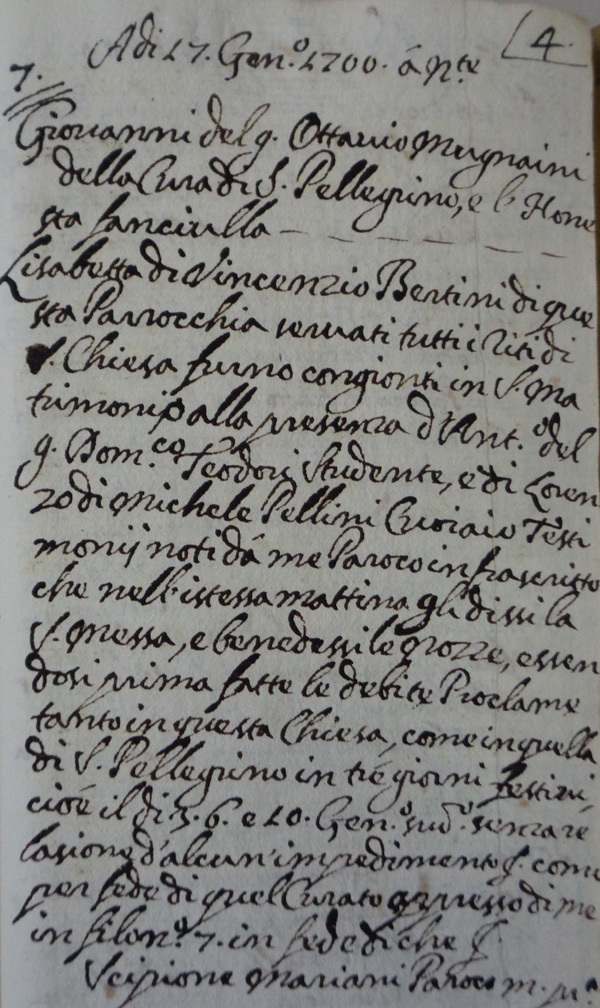 4.
A di 17. Gen.o 1700. á N.te
7.
Giovanni del q. Ottavio Mugnaini
della Cura di S. Pellegrino, e l'Hone
sta fanciulla
Lisabetta di Vincenzio Bertini di que
sta Parrocchia servati tutti i Riti di
S. Chiesa furno congionti in S. Ma
trimonio alla presenza d'Ant.o del
q. Dom.co Teodori Studente, e di Loren
zo di Michele Pellini Cuoiaio Testi
monij noti dá me Paroco infrascritto
che nell'istessa mattina gli dissi la
S. Messa, e benedessi le Nozze, essen
dosi prima fatte le debite Proclame
tanto in questa Chiesa, come in quella
di S. Pellegrino in tré giorni festivi,
cioé il di 3. 6. e 10. Gen.o sud.o senza re
lasione d'alcun'impedimento come
per fede di quel Curato appresso di me
in filo n.o 7. in fede di che
Scipione Mariani Paroco m. p.a